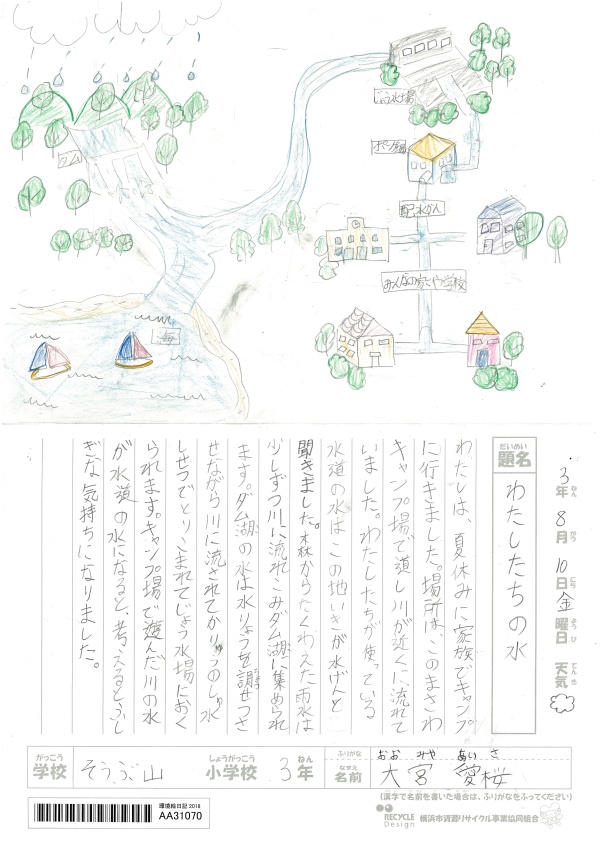 ダム
じょう水場
ポンプ場
配水かん
みんなの家や学校
海
3年8月10日金曜日 天気
ねん がつ にち ようび てんき
だいめい
題名
わたしたちの水
わたしは、夏休みに家族でキャンプ
に行きました。場所は、このまさわ
キャンプ場で道し川が近くに流れて
いました。わたしたちが使っている
水道の水は、この地いきが水げんと
聞きました。森からたくわえた雨水は
少しずつ川に流れこみダム湖に集められ
ます。ダム湖の水は水りょうを調せつさ
せながら川に流されてから
しせつでとりこまれてじょう水場におく
られます。キャンプ場で遊んだ川の水
が水道の水になると、考えるとふし
ぎな気持ちになりました。
がっこう
学校
そうぶ山
しょうがっこう
小学校
3年
ねん
ふりがな
おおみや あいさ
なまえ
名前
大宮 愛桜
(漢字で名前を書いた場合は、ふりがなをふってください)
環境絵日記 2018
AA31070
RECYCLE
Design
横浜市資源リサイクル事業協同組合